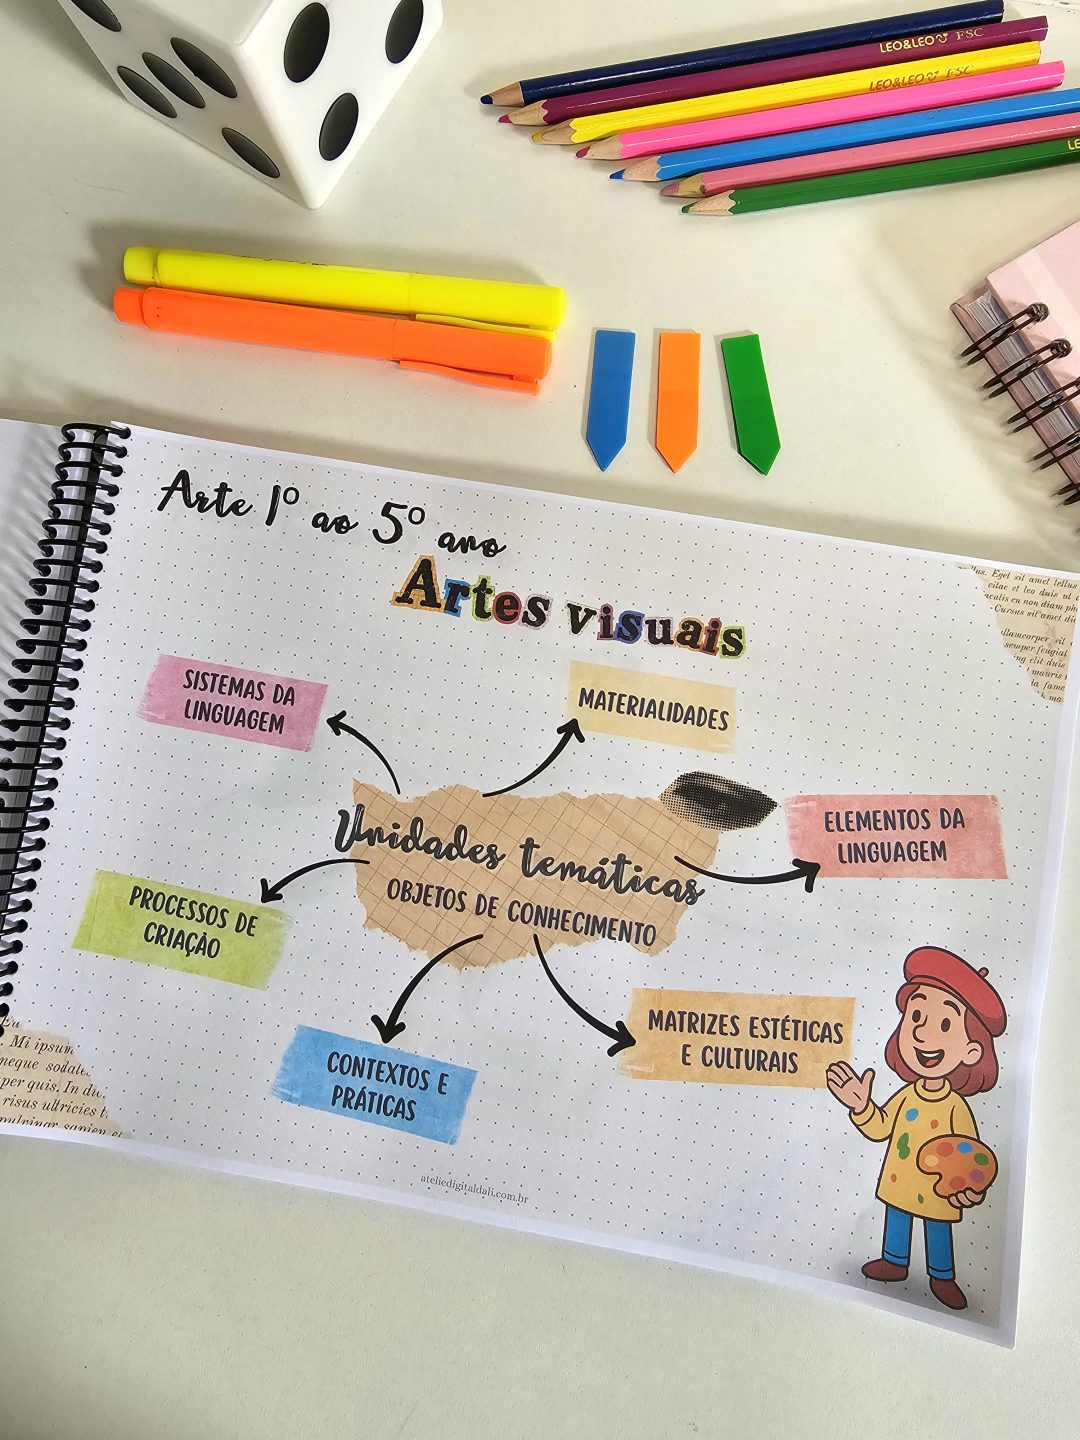 LEO&LEO FSC
LEO&LEO FSC
LE
Arte 1º ao 5º ano
Artes visuais
SISTEMAS DA
LINGUAGEM
MATERIALIDADES
ELEMENTOS DA
LINGUAGEM
Unidades temáticas
OBJETOS DE CONHECIMENTO
PROCESSOS DE
CRIAÇÃO
CONTEXTOS E
PRÁTICAS
MATRIZES ESTÉTICAS
E CULTURAIS
ateliedigitaldali.com.br
Eget sit amet tellus
citae et leo duis ut
eu non diam ph
Cursus sit amet
ullamcorper sit
semper feugiat
elit duis
mauris
fame
Eu
. Mi ipsum
neque
per quis. In
risus ultricies
pulvinar sapien et